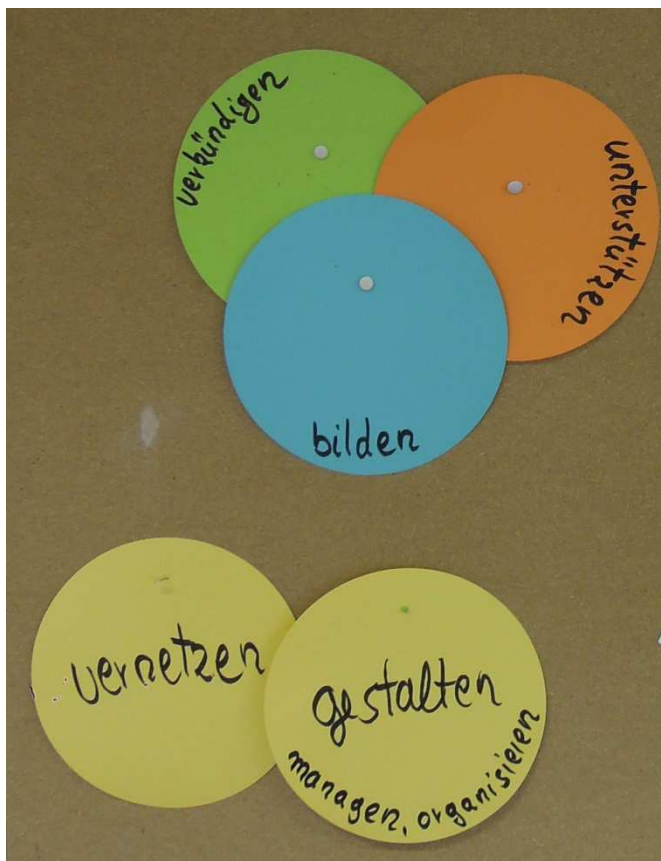 verkündigen
unterstützen
bilden
vernetzen
gestalten
managen, organisieren